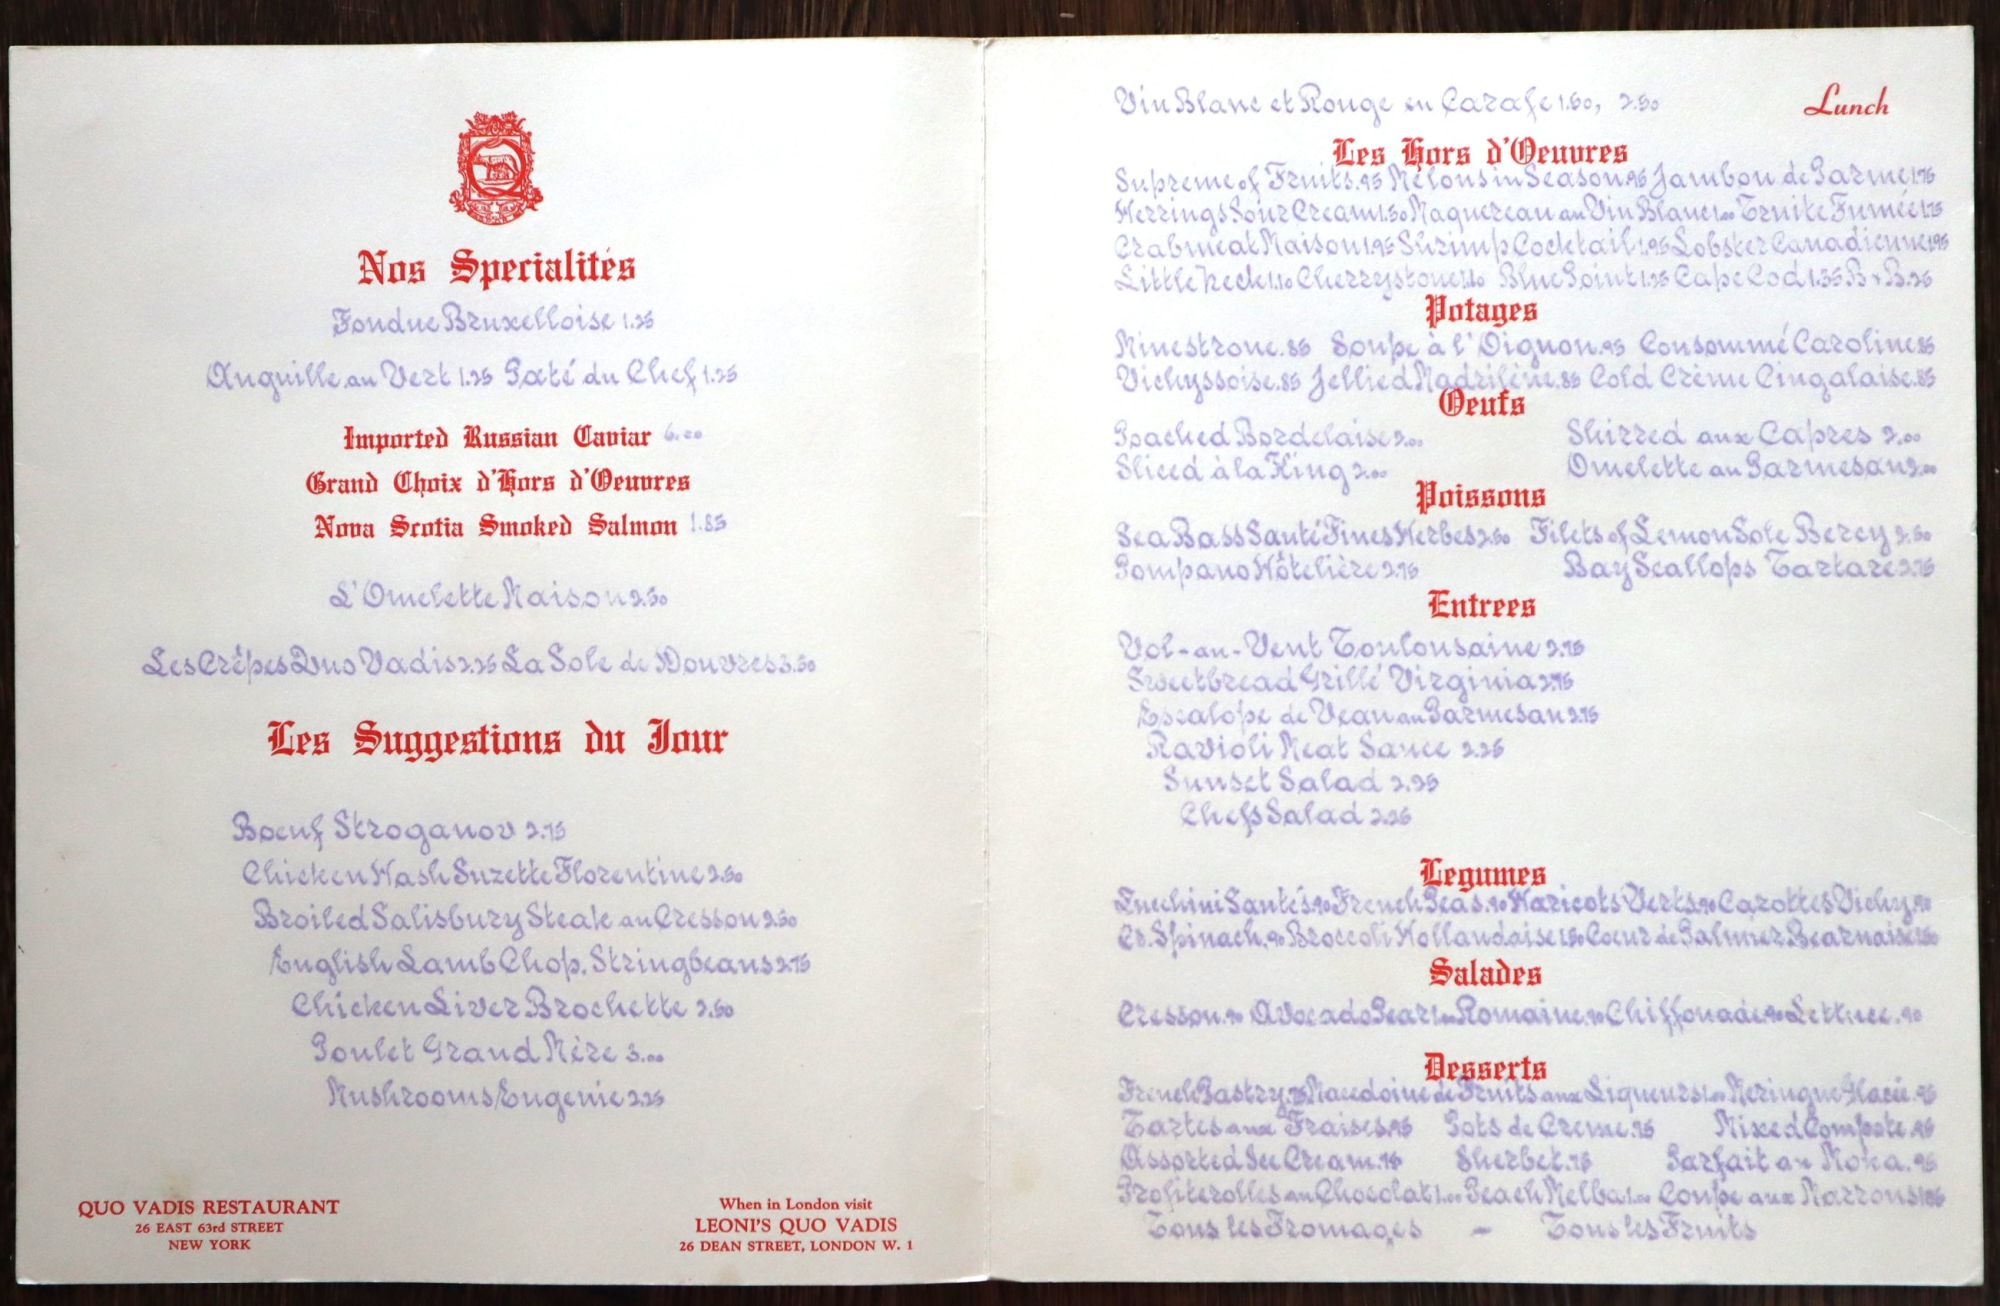 Nos Specialités
Fondue Bruxelloise 1.25
Anguille au Vert 1.25 Paté du Chef 1.25
Imported Russian Caviar 6.00
Grand Choix d'Hors d'Oeuvres
Nova Scotia Smoked Salmon 1.85
L'Omelette Maison 2.50
Les Crêpes Quo Vadis 2.25 La Sole de Douvres 3.50
Les Suggestions du Jour
Boeuf Stroganov 2.75
Chicken Hash Suzette Florentine 2.50
Broiled Salisbury Steak au Cresson 2.50
English Lamb Chop, Stringbeans 2.75
Chicken Liver Brochette 2.50
Poulet Grand Mère 3.00
Mushrooms Eugenie 2.25
QUO VADIS RESTAURANT
26 EAST 63rd STREET
NEW YORK
When in London visit
LEONI'S QUO VADIS
26 DEAN STREET, LONDON W. 1
Vin Blanc et Rouge en Carafe 1.50, 2.50
Lunch
Les Hors d'Oeuvres
Supreme of Fruits .95 Melons in Season .95 Jambon de Parme 1.75
Herrings Sour Cream 1.50 Maquereau au Vin Blanc 1.00 Truite Fumée 1.75
Crabmeat Maison 1.95 Shrimp Cocktail 1.95 Lobster Canadienne 1.95
Little Neck 1.10 Cherrystone 1.10 Blue Point 1.25 Cape Cod 1.35 B+B .25
Potages
Minestrone .85 Soupe à l'Oignon .95 Consommé Caroline .85
Vichyssoise .85 Jellied Madrilène .85 Cold Crème Cingalaise .85
Oeufs
Poached Bordelaise 2.00 Shirred aux Capres 2.00
Sliced à la King 2.00 Omelette au Parmesan 2.00
Poissons
Sea Bass Sauté Fines Herbes 2.50 Filets of Lemon Sole Bercy 2.50
Pompano Hôtelière 2.75 Bay Scallops Tartare 2.75
Entrees
Vol-au-Vent Toulousaine 2.75
Sweetbread Grillé Virginia 2.75
Escalope de Veau au Parmesan 2.75
Ravioli Meat Sauce 2.25
Sunset Salad 2.25
Chefs Salad 2.25
Legumes
Zucchini Sautés .90 French Peas .90 Haricots Verts .90 Carottes Vichy .90
Cr. Spinach .90 Broccoli Hollandaise 1.50 Coeur de Palmier Bearnaise 1.50
Salades
Cresson .90 Avocado Pear 1.00 Romaine .90 Chiffonade .90 Lettuce .90
Desserts
French Pastry .75 Macedoine de Fruits aux Liqueurs 1.00 Meringue Glacée .95
Tartes aux Fraises .95 Pots de Creme .75 Mixed Compote .95
Assorted Ice Cream .75 Sherbet .75 Parfait au Moka .95
Profiterolles au Chocolat 1.00 Peach Melba 1.00 Coupe aux Marrons
Tous les Fromages – Tous les Fruits